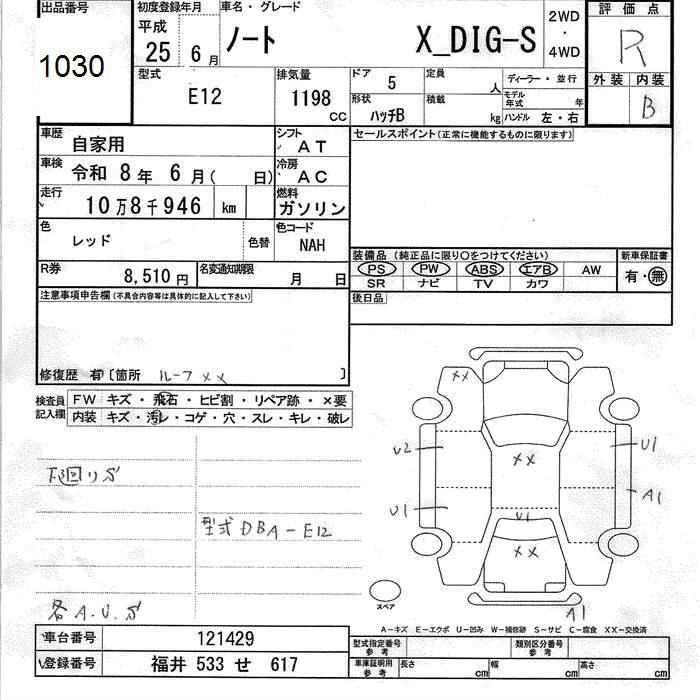 出品番号 初度登録年月 車名・グレード 評価点
1030 平成 25 6月 ノート X_DIG-S 2WD・4WD R
外装 内装
B
型式 E12 排気量 1198 CC ドア 5 定員 人 ディーラー・並行
形状 ハッチB 積載 kg モデル年式 年 ハンドル 左・右
車歴 自家用 シフト AT セールスポイント(正常に機能するものに限ります)
車検 令和 8年 6月( 日) 冷房 AC
走行 10万8千946 km 燃料 ガソリン
色 レッド 色替 色コード NAH
装備品 (純正品に限り○をつけてください) 新車保証書
PS PW ABS エアB AW 有・無
SR ナビ TV カワ
R券 8,510円 名変通知期限 月 日
後日品
注意事項申告欄(不具合内容等は具体的に記入して下さい)
修復歴 有[箇所 ルーフ××]
検査員記入欄 FW キズ・飛石・ヒビ割・リペア跡・×要
内装 キズ・汚レ・コゲ・穴・スレ・キレ・破レ
××
U2 U1
××
A1
U1 U1
××
下回りS
型式DBA-E12
各A.U.S
スペア
A1
A-キズ E-エクボ U-凹み W-補修跡 S-サビ C-腐食 XX-交換済
車台番号 121429 型式指定番号 参考 類別区分番号 参考
登録番号 福井 533 せ 617 車庫証明用 参考 長さ cm 幅 cm 高さ cm